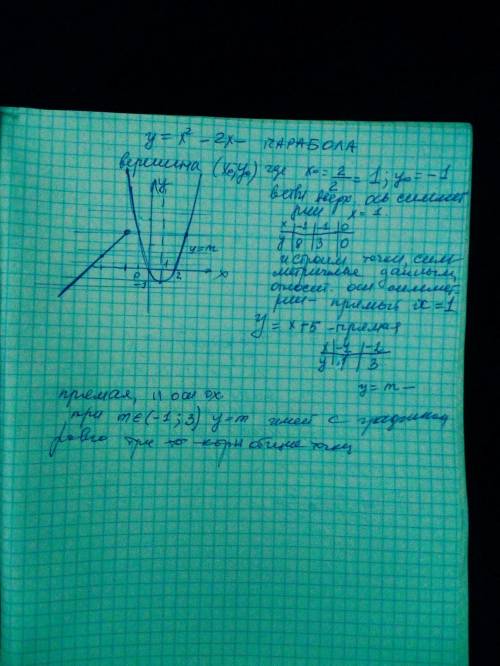 y = x² - 2x - ПАРАБОЛА
вершина (x₀; y₀) где x₀ = 2/2 = 1; y₀ = -1
ветви вверх, ось симмет
рии x = 1
x -1 0
y 8 3 0
и строим точки, сим-
метричные данным,
относит. оси симмет
рии - прямый x = 1
y
y = m
0 1 2 x
-1
y = x + 5 - прямая
x -2
y 3
y = m -
прямая, || оси ox
при m ∈ (-1; 3) y = m имеет с графиком
ровно три общие точки